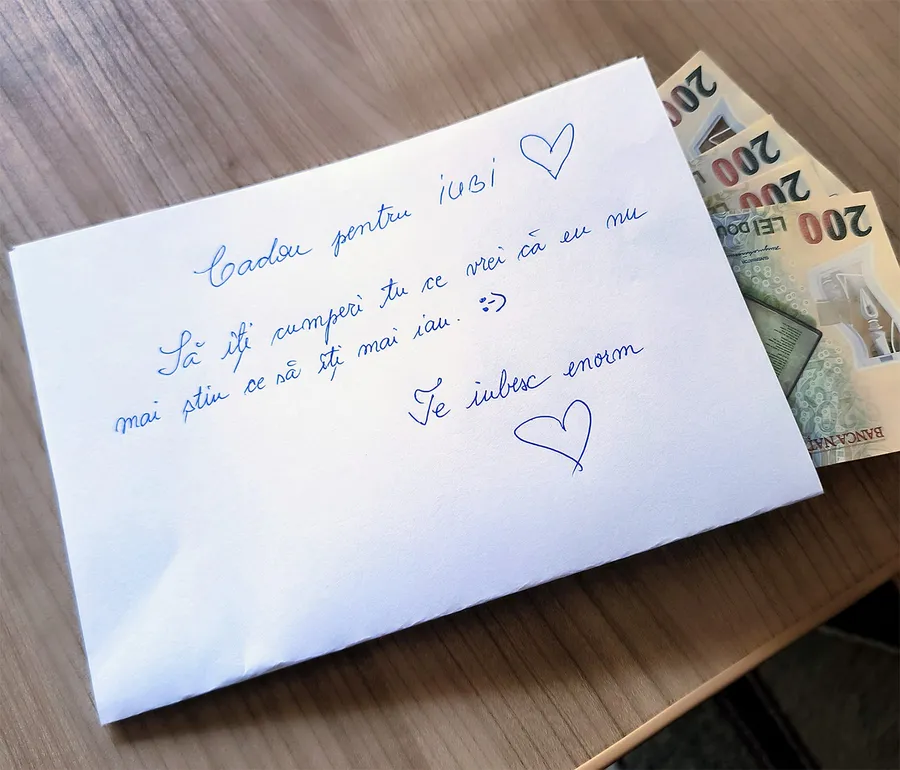 Cadou pentru iubi
Să îți cumperi tu ce vrei că eu nu
mai știu ce să îți mai iau. :-)
Te iubesc enorm
200
200
200
200
LEI DOU
BANCA NAȚ